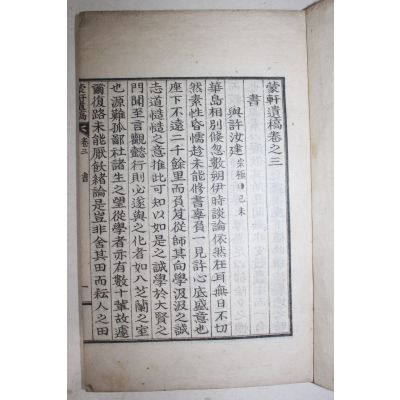 蒙軒遺稿卷之三
書
與許汝建宗極 己未
華島相別倐忽數朔伊時談論依然在耳無日不切
然素性昏懦趂未能修書辜員一見許心底盛意也
座下不遠二千餘里而員笈從師其向學汲汲之誠
志道慥慥之意推此可知以如是之誠學於大賢之
門聞至言觀懿行則必遂與之化者如入芝蘭之室
也源難孤鄙社諸生之望從學者亦有數十輩故遽
爾復路未能厭飫緒論是豈非舍其田而耘人之田
蒙軒遺稿 卷三 書 一